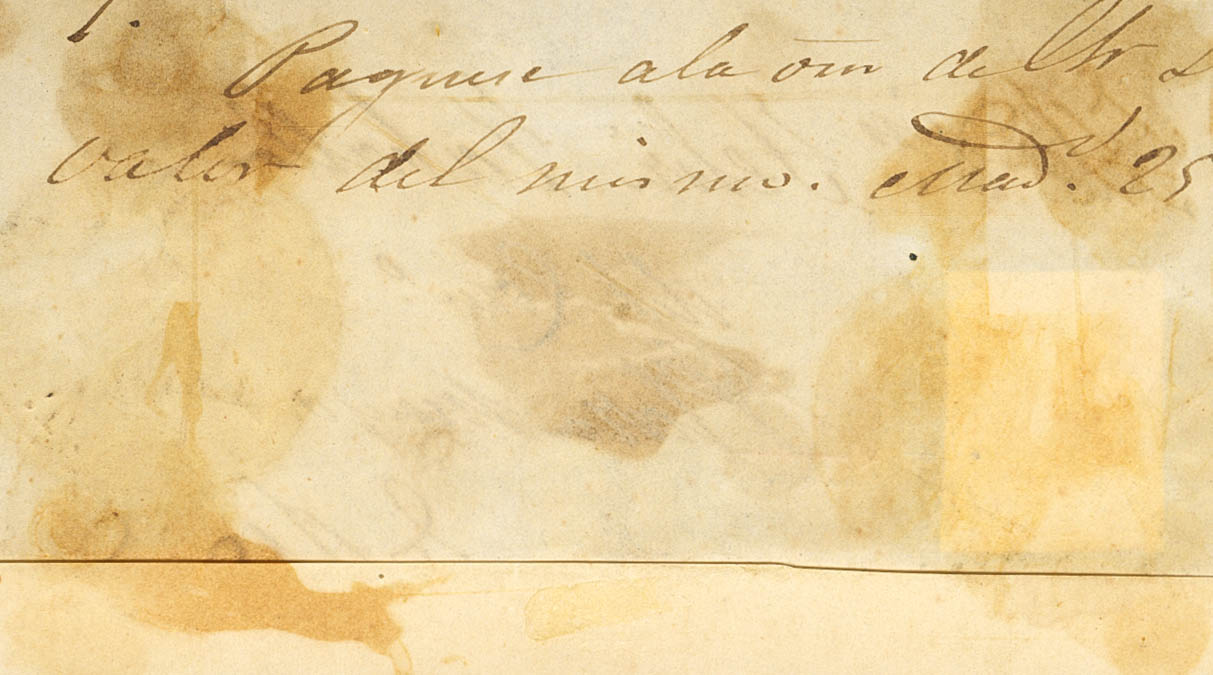 Paguese a la orn del Sr
valor del mismo. Mad.d 25